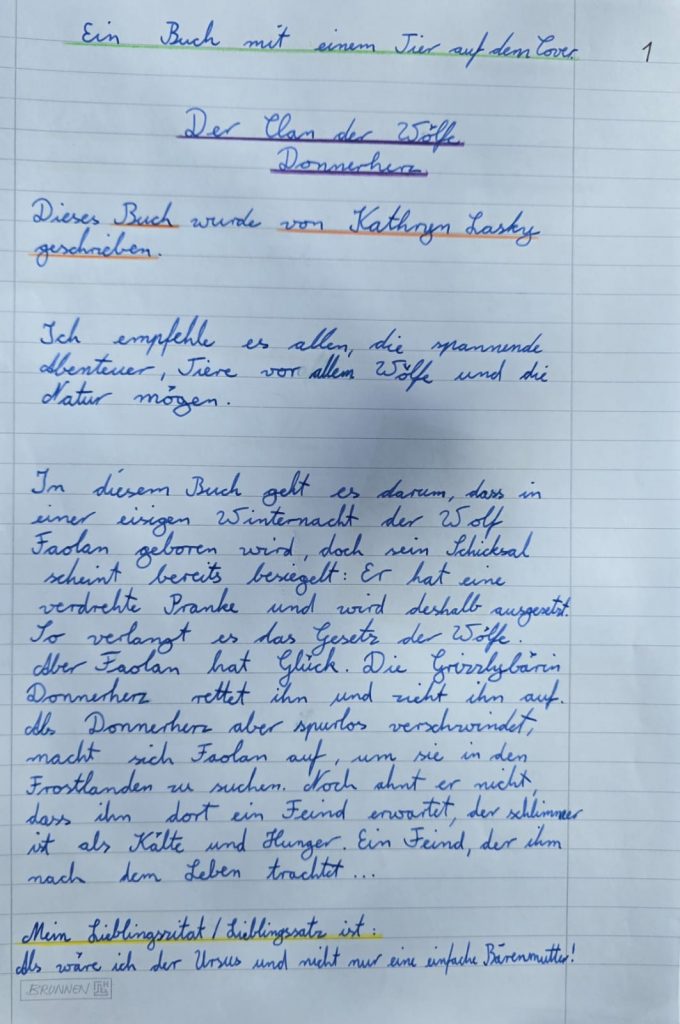 Ein Buch mit einem Tier auf dem Cover.
1
Der Clan der Wölfe
Donnerherz
Dieses Buch wurde von Kathryn Lasky
geschrieben.
Ich empfehle es allen, die spannende
Abenteuer, Tiere vor allem Wölfe und die
Natur mögen.
In diesem Buch geht es darum, dass in
einer eisigen Winternacht der Wolf
Faolan geboren wird, doch sein Schicksal
scheint bereits besiegelt: Er hat eine
verdrehte Pranke und wird deshalb ausgesetzt.
So verlangt es das Gesetz der Wölfe.
Aber Faolan hat Glück. Die Grizzlybärin
Donnerherz rettet ihn und zieht ihn auf.
Als Donnerherz aber spurlos verschwindet,
macht sich Faolan auf, um sie in den
Frostlanden zu suchen. Noch ahnt er nicht,
dass ihn dort ein Feind erwartet, der schlimmer
ist als Kälte und Hunger. Ein Feind, der ihm
nach dem Leben trachtet ...
Mein Lieblingszitat / Lieblingssatz ist:
Als wäre ich der Ursus und nicht nur eine einfache Bärenmutter!
BRUNNEN